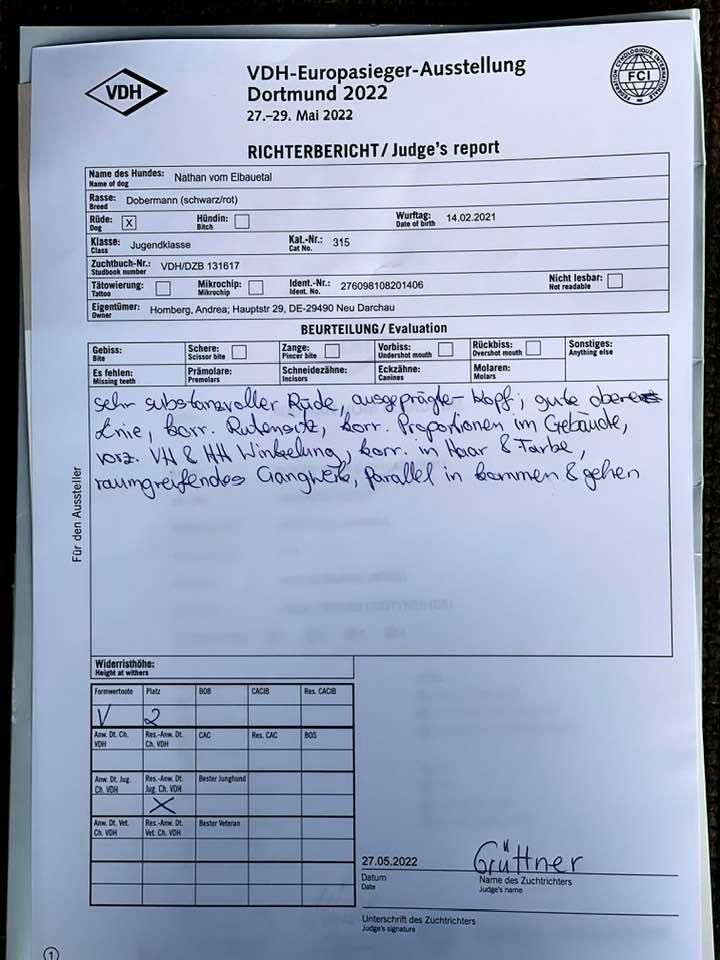 VDH
VDH-Europasieger-Ausstellung
Dortmund 2022
27.–29. Mai 2022
FEDERATION CYNOLOGIQUE INTERNATIONALE
FCI
RICHTERBERICHT/Judge's report
Name des Hundes: Nathan vom Elbauetal
Name of dog
Rasse: Dobermann (schwarz/rot)
Breed
Rüde: X Hündin: Wurftag: 14.02.2021
Dog Bitch Date of birth
Klasse: Jugendklasse Kat.-Nr.: 315
Class Cat No.
Zuchtbuch-Nr.: VDH/DZB 131617
Studbook number
Tätowierung: Mikrochip: Ident.-Nr.: 276098108201406 Nicht lesbar:
Tattoo Mikrochip Ident. No. Not readable
Eigentümer: Homberg, Andrea; Hauptstr 29, DE-29490 Neu Darchau
Owner
BEURTEILUNG/Evaluation
Gebiss: Schere: Zange: Vorbiss: Rückbiss: Sonstiges:
Bite Scissor bite Pincer bite Undershot mouth Overshot mouth Anything else
Es fehlen: Prämolare: Schneidezähne: Eckzähne: Molaren:
Missing teeth Premolars Incisors Canines Molars
sehr substanzvoller Rüde, ausgeprägter Kopf; gute obere
Linie, korr. Rutensitz, korr. Proportionen im Gebäude,
vorz. VH & HH Winkelung, korr. in Haar & Farbe,
raumgreifendes Gangwerk, parallel in kommen & gehen
Für den Aussteller
Widerristhöhe:
Height at withers
Formwertnote Platz BOB CACIB Res. CACIB
V 2
Anw. Dt. Ch. Res.-Anw. Dt. CAC Res. CAC BOS
VDH Ch. VDH
Anw. Dt. Jug. Res.-Anw. Dt. Bester Junghund
Ch. VDH Jug. Ch. VDH
X
Anw. Dt. Vet. Res.-Anw. Dt. Bester Veteran
Ch. VDH Vet. Ch. VDH
27.05.2022 Grüttner
Datum Name des Zuchtrichters
Date Judge's name
Unterschrift des Zuchtrichters
Judge's signature
1